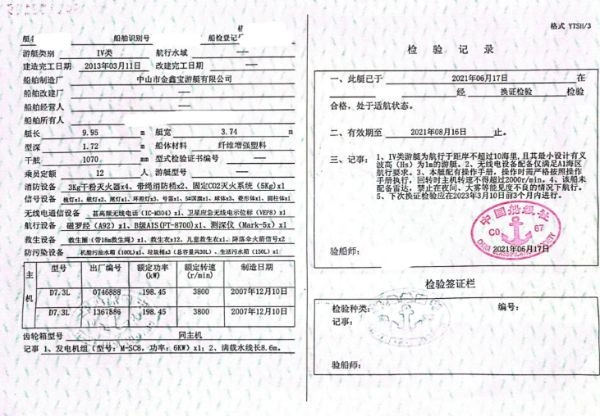 船舶识别号
船检登记号
游艇类别 IV类 航行水域
建造完工日期 2013年03月11日 改建完工日期
船舶制造厂 中山市金鑫宝游艇有限公司
船舶改建厂
船舶经营人
船舶所有人
艇长 9.95 m 艇宽 3.74 m
型深 1.72 m 船体材料 纤维增强塑料
干舷 1070 mm 型式检验证书编号
乘员定额 12 人 游艇型号
消防设备 3Kg干粉灭火器x4、带绳消防桶x2、固定CO2灭火系统(5Kg)x1
信号设备
无线电通信设备 甚高频无线电话(IC-M304)x1、卫星应急无线电示位标(VEP8)x1
航行设备 磁罗经(A92)x1、B级AIS(PT-8700)x1、测深仪(Mark-5x)x1
救生设备 救生圈(带18m救生绳)x1、救生衣x12、儿童救生衣x1、降落伞火箭信号x2
防污染设备 机舱污油水箱(100L)x1、垃圾桶x3(总容量共30L)、生活污水箱(150L)x1
主机 型号 出厂编号 额定功率(kW) 额定转速(r/min) 制造日期
D7.3L 0746888 198.45 3800 2007年12月10日
D7.3L 1367886 198.45 3800 2007年12月10日
齿轮箱型号 同主机
记事 1、发电机组(型号:M-SC8,功率:6KW)x1;2、满载水线长8.6m。
格式 YTSH/3
检 验 记 录
一、此艇已于 2021年06月17日 在
经 换证检验 检验
合格,处于适航状态。
二、有效期至 2021年08月16日 止。
三、记事: 1、IV类游艇为航行于距岸不超过10海里,且其最小设计有义
波高(Hs)为1m的游艇。2、无线电设备配备仅满足A1海区
航行要求。3、本艇配有操作手册,操作时需严格按照操作
手册执行,回转时主机转速不得超过2000r/min。4、该船未
配备雷达,禁止在夜间、大雾等能见度不良的情况下航行。
5、下次换证检验应在2023年3月10日前3个月内进行。
中国船级社
C0 67
验船师: 2021年06月17日
检验签证栏
检验种类: 编号:
记事:
验船师: